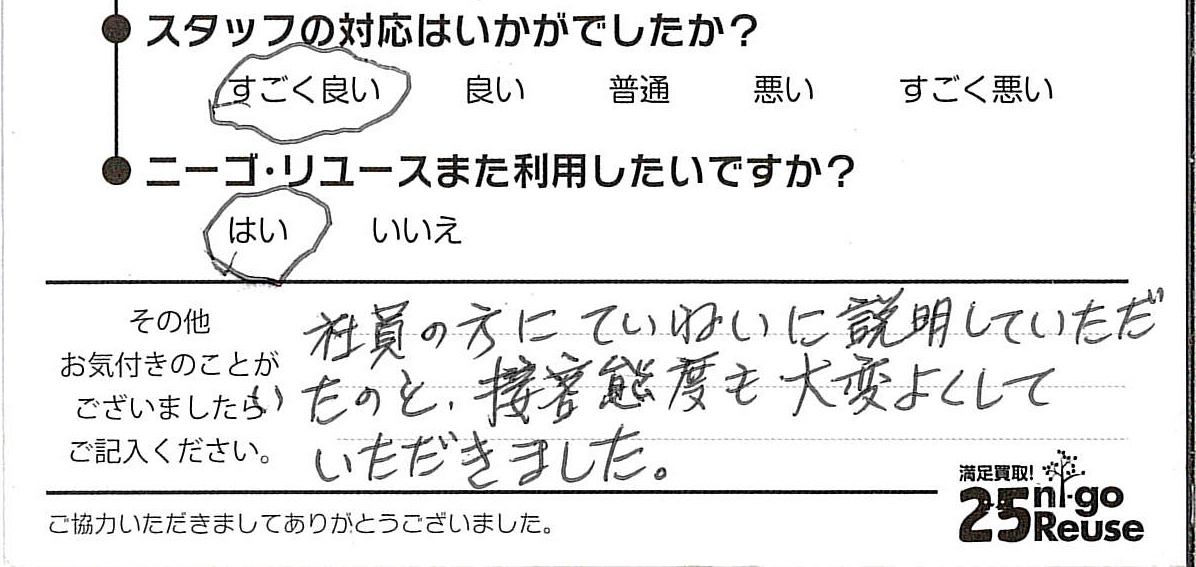 スタッフの対応はいかがでしたか?
すごく良い 良い 普通 悪い すごく悪い
ニーゴ・リユースまた利用したいですか?
はい いいえ
その他
お気付きのことが
ございましたら
ご記入ください。
社員の方にていねいに説明していただ
いたのと、接客態度も大変よくして
いただきました。
満足買取!
25 ni-go
Reuse
ご協力いただきましてありがとうございました。